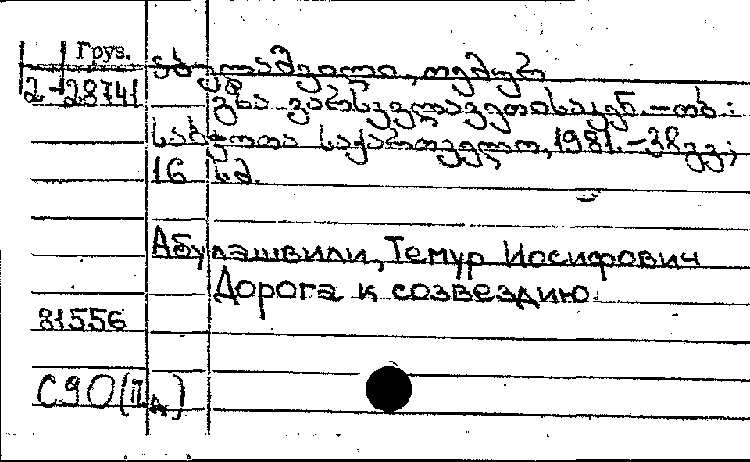 Груз.
2-28741
აბულაშვილი, თემურ
გზა ვარსკვლავეთისაკენ. – თბ.:
საბჭოთა საქართველო, 1981. – 38 გვ;
16 სმ.
Абулашвили, Темур Иосифович
Дорога к созвездию.
81556
С90(